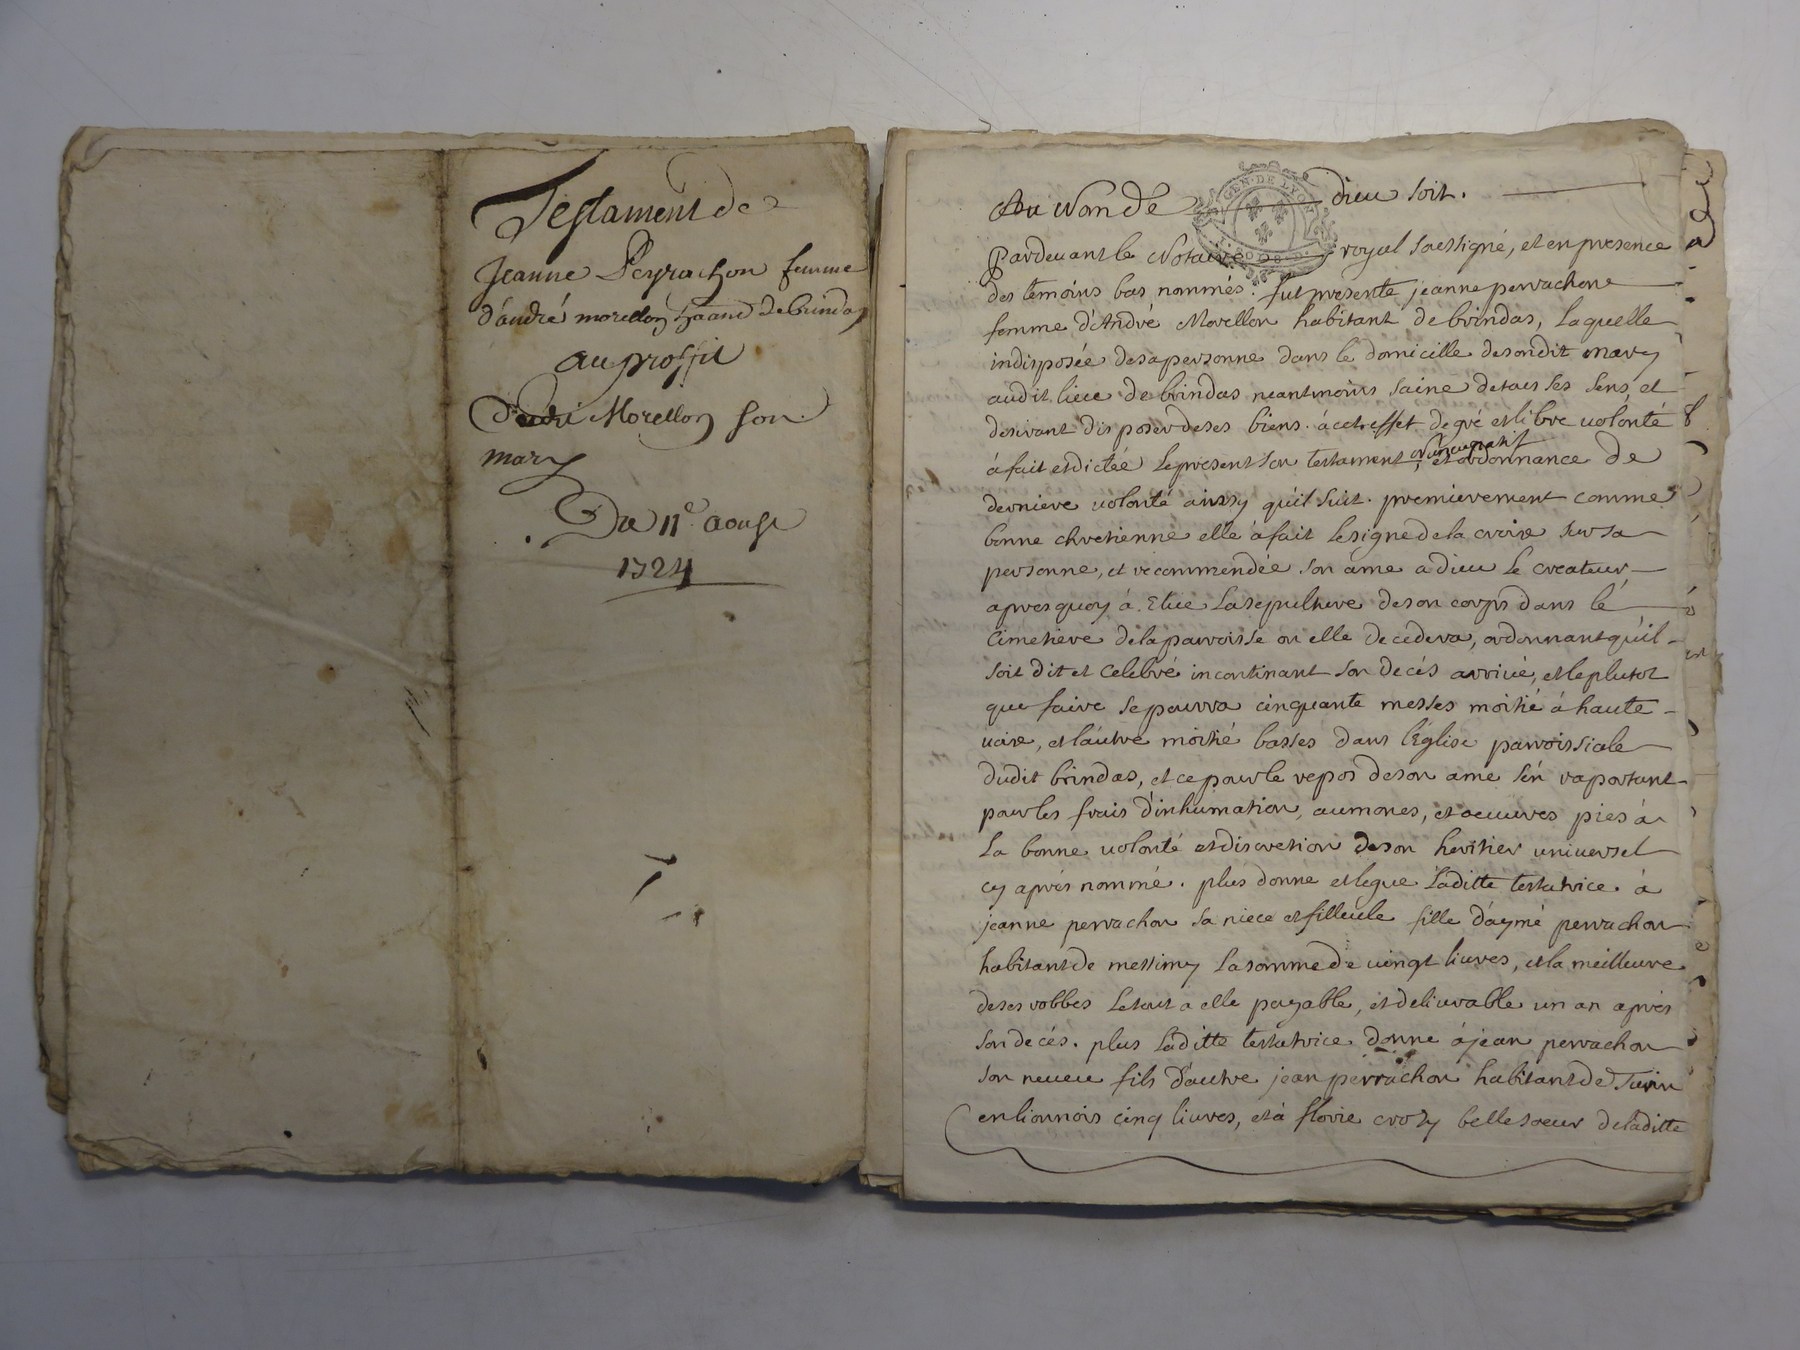 Testament de
Jeanne Peyrachon femme
d'andré morellon habitant de brindas
au proffit
d'andré Morellon son
mary
Du 11e. aoust
1724
Au Nom de dieu soit.
GEN. DE LYON
Pardevant le Notaire royal soussigné, et en presence
des temoins bas nommés. fut presente jeanne perrachone
femme d'André Morellon habitant de brindas, laquelle
indisposée de sa personne dans le domicille de son dit mary
audit lieu de brindas neantmoins saine de tous ses sens, et
desirant disposer de ses biens. à cet effet de gré et libre volonté
nuncupatif
à fait et dictée le present son testament, et ordonnance de
derniere volonté ainsy qu'il suit. premierement comme
bonne chretienne elle à fait le signe de la croix sur sa
personne, et recommendée son ame a dieu le createur
apres quoy à Elue la sepulture de son corps dans le
Cimetiere de la parroisse ou elle decedera, ordonnant qu'il
soit dit et celebré incontinant son decés arrivé, et le plutot
que faire se pourra cinquante messes moitié à haute
voix, et l'autre moitié basses dans l'Eglise parroissiale
dudit brindas, et ce pour le repos de son ame s'en raportant
pour les frais d'inhumation, aumones, et oeuvres pies à
la bonne volonté et discretion de son heritier universel
cy aprés nommé. plus donne et legue laditte testatrice à
jeanne perrachon sa niece et filleule fille d'aymé perrachon
habitant de messimy la somme de vingt livres, et la meilleure
de ses robbes le tout a elle payable, et delivrable un an aprés
son decés. plus laditte testatrice donne à jean perrachon
son neveu fils d'autre jean perrachon habitant de Turin
en lionnois cinq livres, et à florie crozy belle soeur de laditte